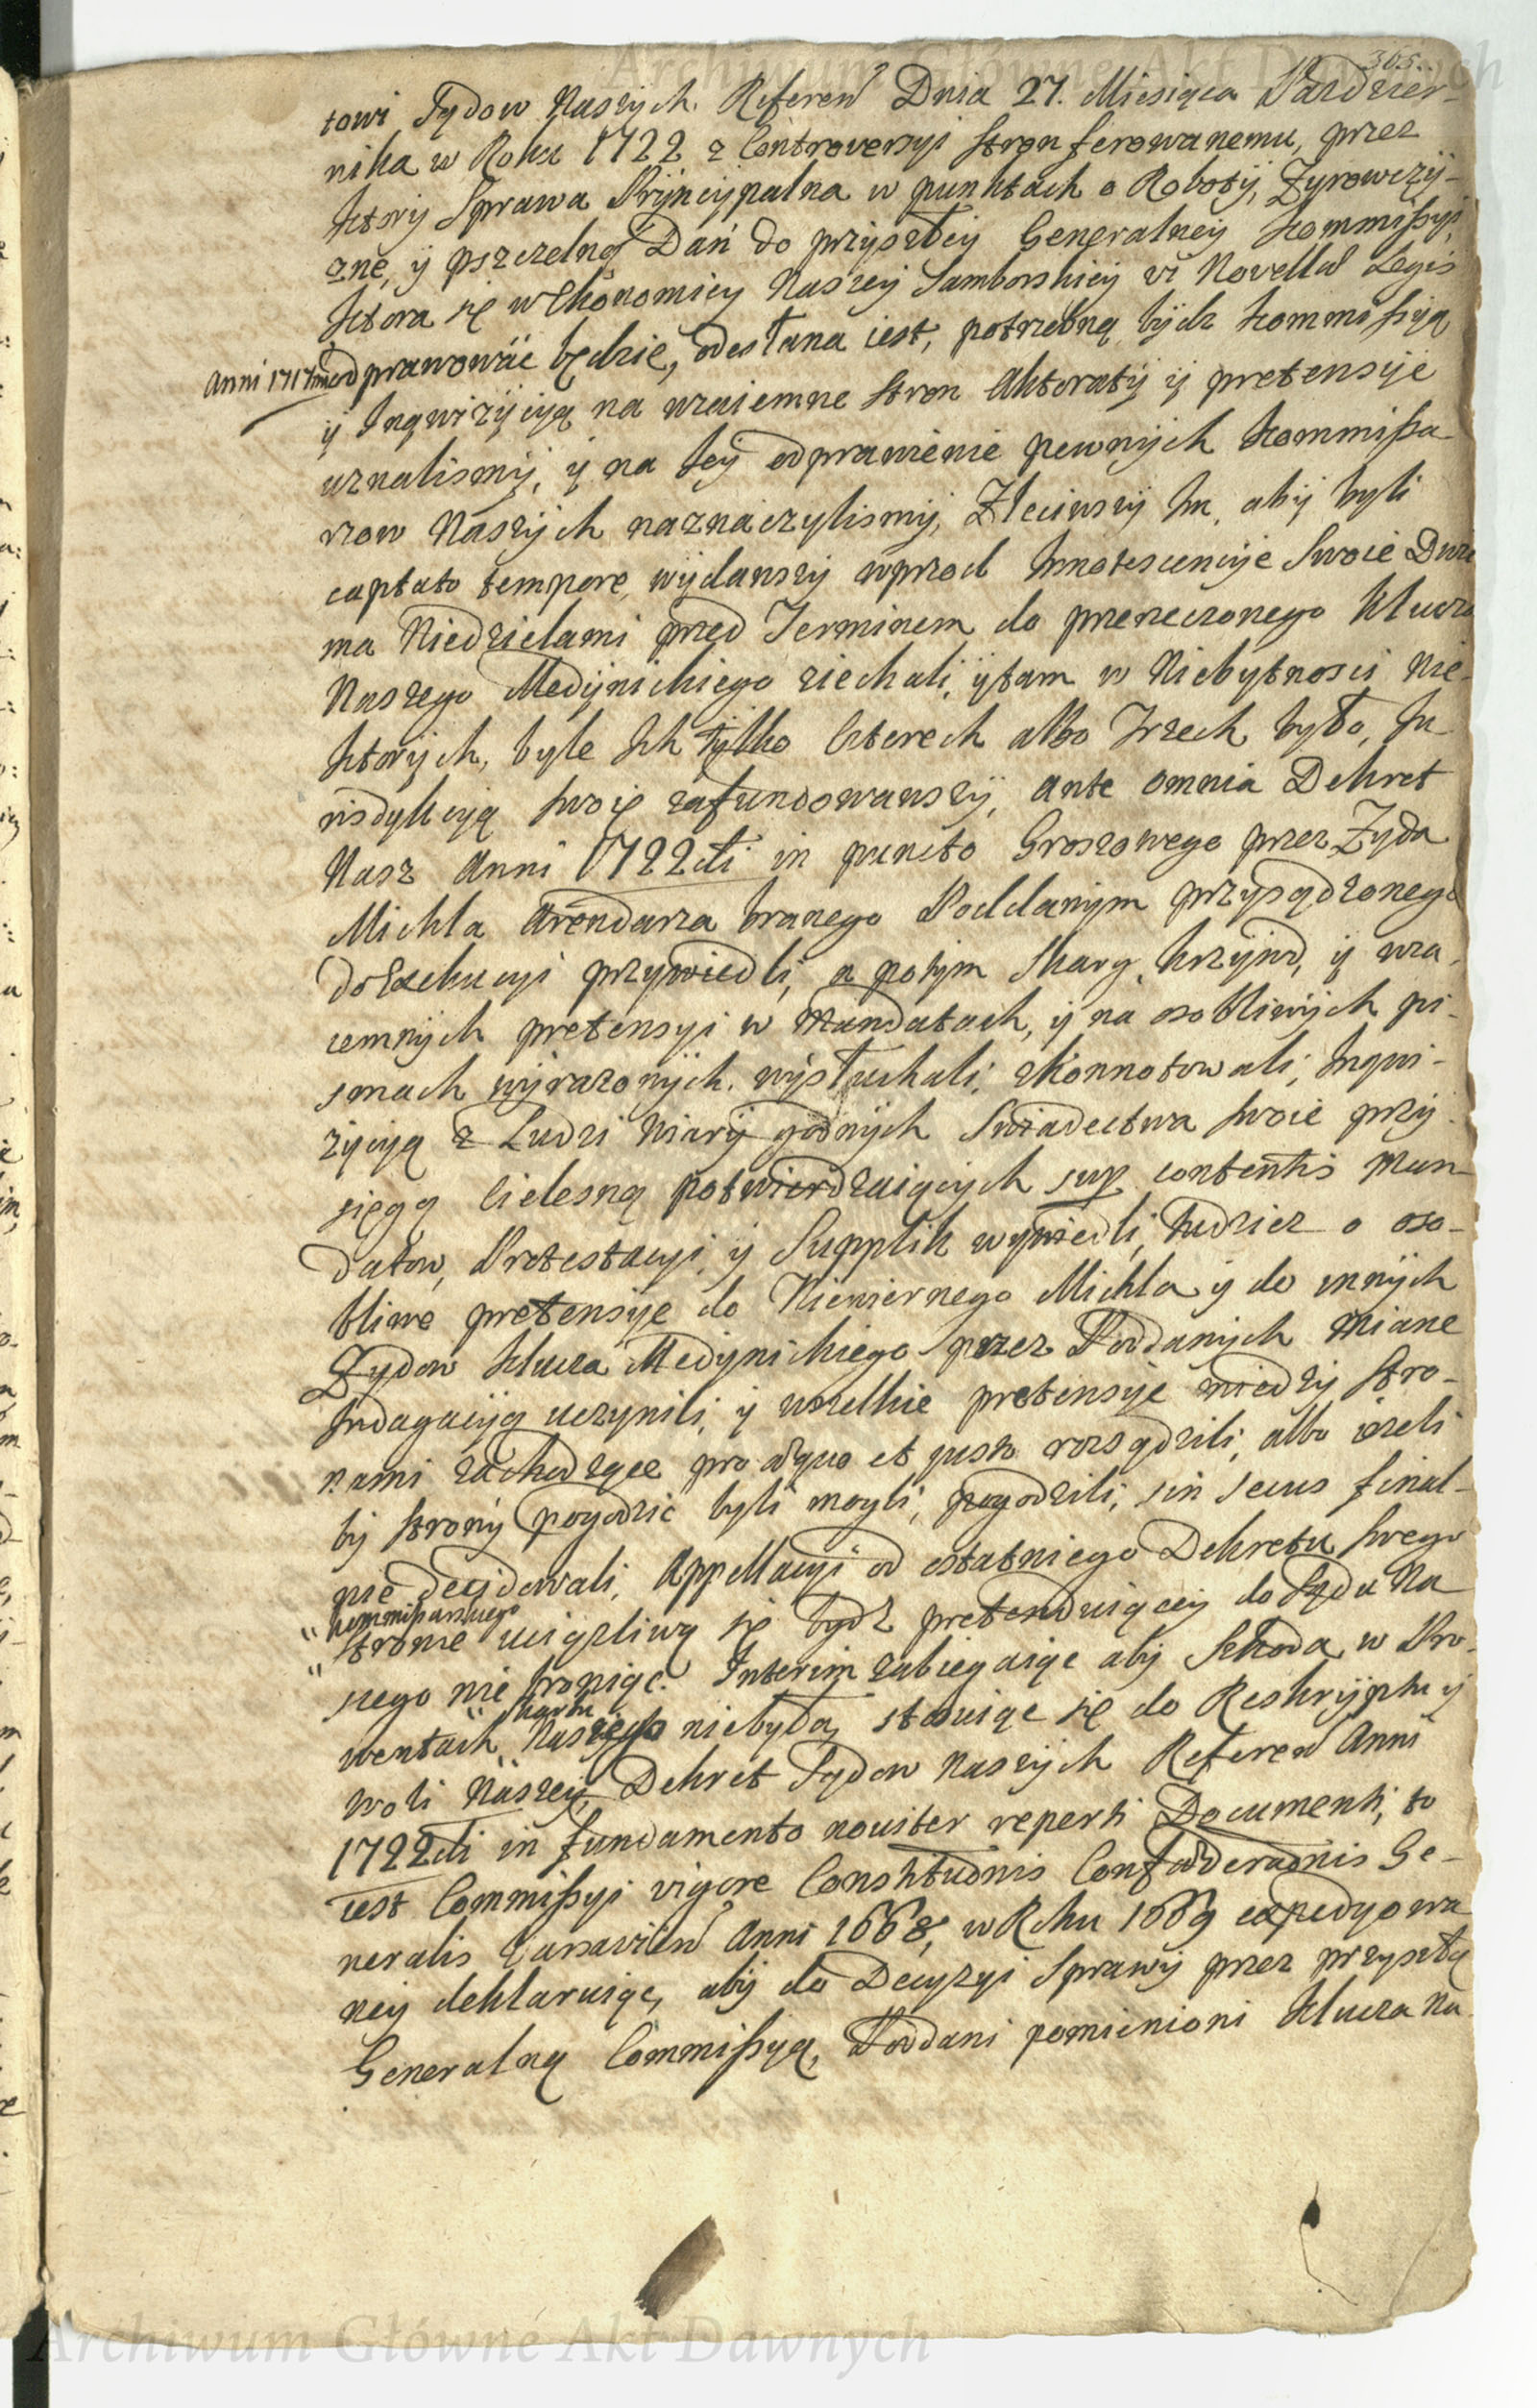 Archiwum Główne Akt Dawnych
365.
towi Sądow Naszych. Referen Dnia 27. Miesiąca Pazdzier-
nika w Roku 1722 z Controversyi Stron ferowanemu, przez
ktory Sprawa Pryncypalna w punktach o Roboty, Zyrowczy-
zne, y pszczelną Dań do przyszłey Generalney Kommissyi,
ktora się w Ekonomiey Naszey Samborskiey vi Novella Legis
Anni 1717mi odprawować będzie, odesłana iest, potrzebną bydz Kommissyą
y Inqwizycyą na wzaiemne Stron Aktoraty y pretensye
uznalismy, y na Jey odprawienie pewnych Kommissa
rzow Naszych naznaczylismy, Zleciwszy Im, aby byli
captato tempore, wydawszy wprzod Innotescencye Swoie Dwie
ma Niedzielami przed Terminem do przerzeczonego Klucza
Naszego Medynickiego ziechali, y tam w Niebytnosci Nie-
ktorych, byle Ich tylko Czterech albo Trzech było, Iu
risdykcyą swoię zafundowawszy, ante omnia Dekret
Nasz Anni 1722di in puncto Groszowego przez Zyda
Michla Arendarza branego Poddanym przysądzonego
do Exekucyi przywiedli, a potym Skarg, krzywd, y wza-
iemnych pretensyi w Mandatach, y na osobliwych pi-
smach wyrazonych. wysłuchali, zkonnotowali, Inqwi-
zycyą z Ludzi wiary godnych Swiadectwa swoie przy-
sięgą Cielesną potwierdzaiących sup contentis Man
datow, Protestacyi, y Supplik wywiedli, tudziez o oso-
bliwe pretensye do Niewiernego Michla y do innych
Zydow Klucza Medynickiego przez Poddanych miane
Indagacyą uczynili, y wszelkie pretensye miedzy Stro-
nami zachodzące pro æquo et justo rozsądzili, albo ieżeli
by strony pogodzić byli mogli, pogodzili, sin secus final-
nie decidowali, Appellacyi od ostatniego Dekretu swego
" Kommissarskiego
Stronie uciązliwą się bydz pretenduiącey do Sądu Na
" szego nie broniąc. Interim zabiegaiąc aby Szkoda w Pro-
wentach " Skarbu Naszego niebyła, stosuiąc się do Reskryptu y
woli Naszey, Dekret Sądow Naszych Referen Anni
1722di in fundamento noviter reperti Documenti, to
iest Commissyi vigore Constitutionis Confœderationis Ge-
neralis Varsavien Anni 1668, w Roku 1669 expedyowa
ney deklaruiąc, aby do Decyzyi Sprawy przez przyszłą
Generalną Commissyą, Poddani pomienioni Klucza Na
Archiwum Główne Akt Dawnych